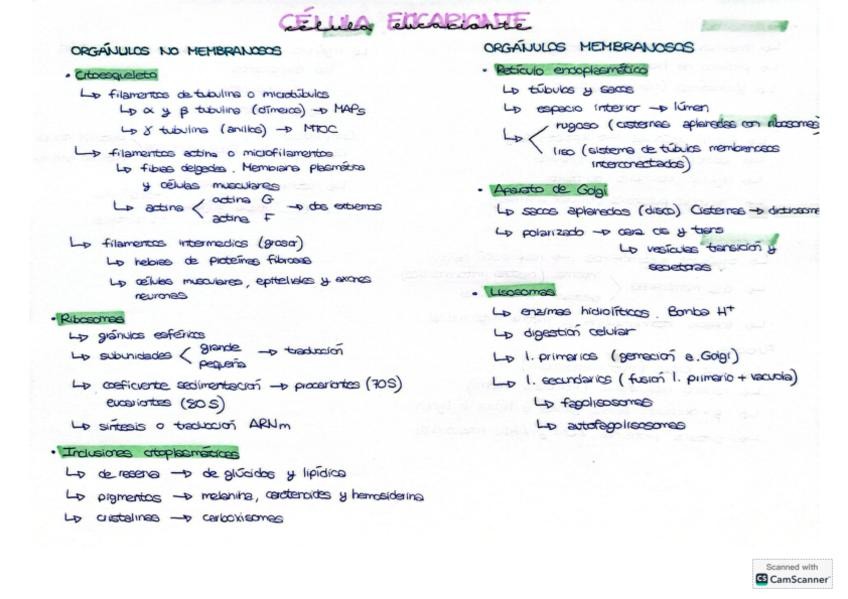 CÉLULA EUCARIONTE
célula eucarionte
ORGÁNULOS NO MEMBRANOSOS
• Citoesqueleto
↳ filamentos de tubulina o microtúbulos
↳ α y β tubulina (dímeros) → MAPs
↳ γ tubulina (anillos) → MTOC
↳ filamentos actina o microfilamentos
↳ fibras delgadas. Membrana plasmática
y células musculares
↳ actina < actina G
actina F → dos extremos
↳ filamentos intermedios (grosor)
↳ hebras de proteínas fibrosas
↳ células musculares, epiteliales y axones
neuronas
• Ribosomas
↳ gránulos esféricos
↳ subunidades < grande
pequeña → traducción
↳ coeficiente sedimentación → procariontes (70S)
eucariontes (80S)
↳ síntesis o traducción ARNm
• Inclusiones citoplasmáticas
↳ de reserva → de glúcidos y lipídica
↳ pigmentos → melanina, carotenoides y hemosiderina
↳ cristalinas → carboxisomas
ORGÁNULOS MEMBRANOSOS
• Retículo endoplasmático
↳ túbulos y sacos
↳ espacio interior → lúmen
↳ < rugoso (cisternas aplanadas con ribosomas)
liso (sistema de túbulos membranosos
interconectados)
• Aparato de Golgi
↳ sacos aplanados (disco) Cisternas → dictiosoma
↳ polarizado → cara cis y trans
↳ vesículas transición y
secretoras
• Lisosomas
↳ enzimas hidrolíticos. Bomba H⁺
↳ digestión celular
↳ l. primarios (gemación a. Golgi)
↳ l. secundarios (fusión l. primario + vacuola)
↳ fagolisosomas
↳ autofagolisosomas
Scanned with
CS CamScanner